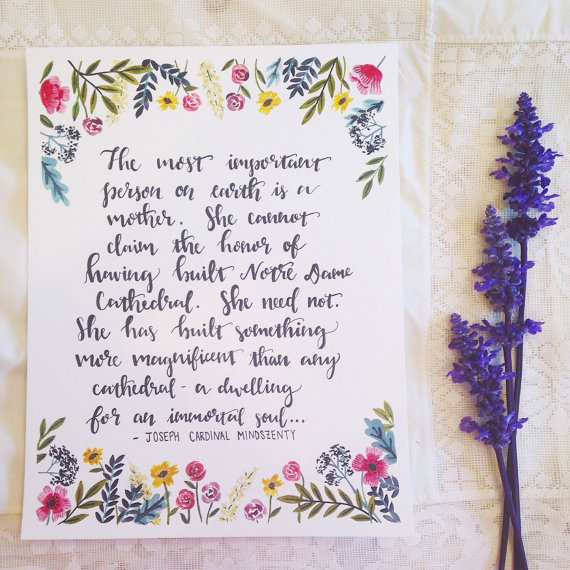 The most important
person on earth is a
mother. She cannot
claim the honor of
having built Notre Dame
Cathedral. She need not.
She has built something
more magnificent than any
cathedral - a dwelling
for an immortal soul...
- JOSEPH CARDINAL MINDSZENTY